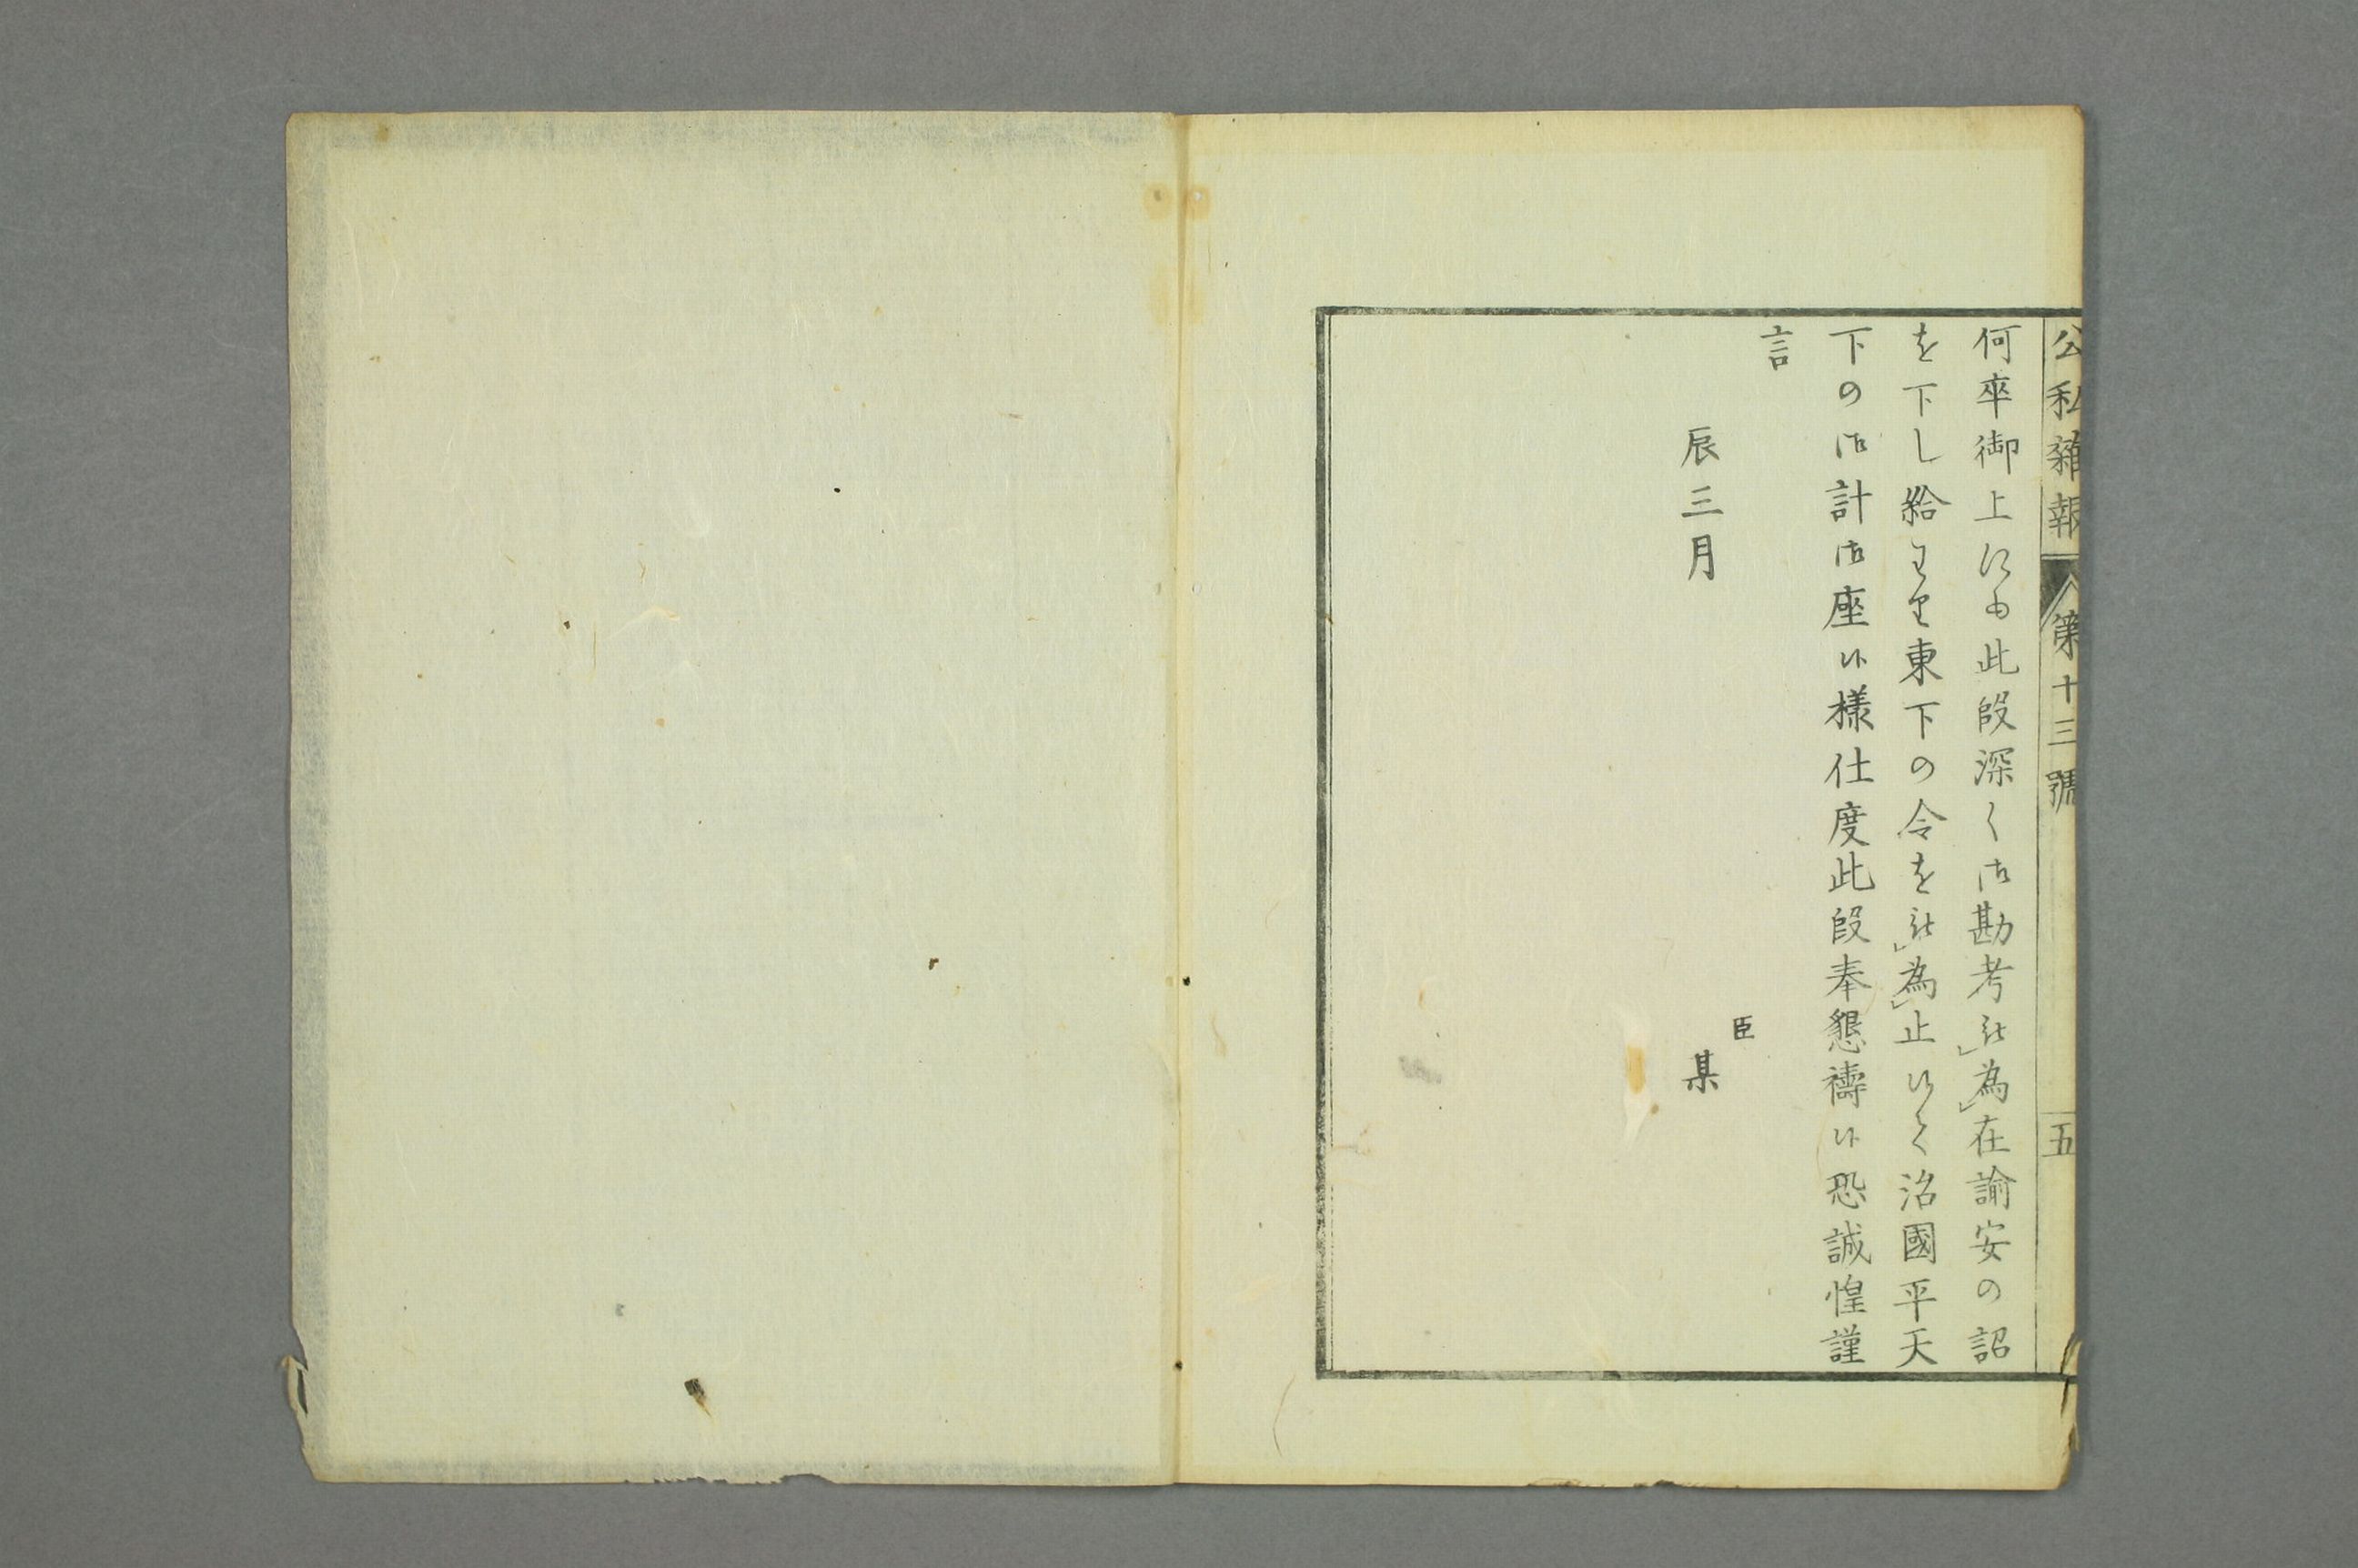 公私雜報 第十三號 五
何卒御上に而此段深く御勘考被為在諭安の詔
を下し給わり東下の令を被為止候て治國平天
下の御計御座候樣仕度此段奉懇禱候恐誠惶謹
言
臣
辰三月 某